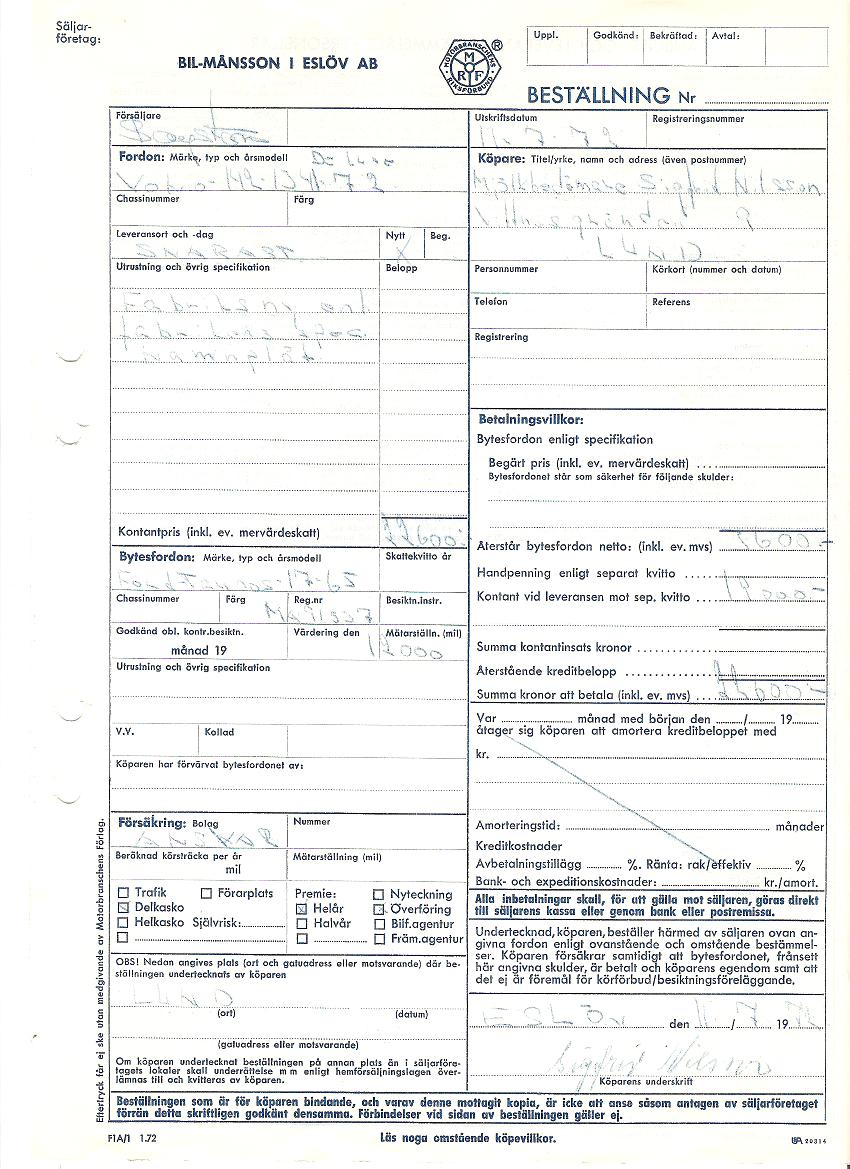 Säljar-
företag:
BIL-MÅNSSON I ESLÖV AB
MOTORBRANSCHENS RIKSFÖRBUND
M
R F
®
Uppl. Godkänd: Bekräftad: Avtal:
BESTÄLLNING Nr
Försäljare
Utskriftsdatum Registreringsnummer
11.7.72
Fordon: Märke, typ och årsmodell De Luxe
Volvo 142-134-72
Köpare: Titel/yrke, namn och adress (även postnummer)
Sigfrid Nilsson
9
LUND
Chassinummer Färg
Leveransort och -dag Nytt Beg.
SNARAST X
Utrustning och övrig specifikation Belopp
Fabriksny enl
fabrikens spec.
namnplåt
Personnummer Körkort (nummer och datum)
Telefon Referens
Registrering
Betalningsvillkor:
Bytesfordon enligt specifikation
Begärt pris (inkl. ev. mervärdeskatt)
Bytesfordonet står som säkerhet för följande skulder:
Kontantpris (inkl. ev. mervärdeskatt) 22600:-
Återstår bytesfordon netto: (inkl. ev. mvs)
Bytesfordon: Märke, typ och årsmodell Skattekvitto år
Ford Taunus-17-65
Handpenning enligt separat kvitto
Kontant vid leveransen mot sep. kvitto
Chassinummer Färg Reg.nr Besiktn.instr.
Godkänd obl. kontr.besiktn. Värdering den Mätarställn. (mil)
månad 19 12000
Summa kontantinsats kronor
Utrustning och övrig specifikation
Återstående kreditbelopp
Summa kronor att betala (inkl. ev. mvs) 22600:-
Var månad med början den / 19
åtager sig köparen att amortera kreditbeloppet med
kr.
V.V. Kollad
Köparen har förvärvat bytesfordonet av:
Försäkring: Bolag Nummer
ANSVAR
Amorteringstid: månader
Kreditkostnader
Avbetalningstillägg %. Ränta: rak/effektiv %
Bank- och expeditionskostnader: kr./amort.
Beräknad körsträcka per år Mätarställning (mil)
mil
Trafik Förarplats Premie: Nyteckning
Delkasko Helår Överföring
Helkasko Självrisk: Halvår Bilf.agentur
Främ.agentur
Alla inbetalningar skall, för att gälla mot säljaren, göras direkt
till säljarens kassa eller genom bank eller postremissa.
Undertecknad, köparen, beställer härmed av säljaren ovan an-
givna fordon enligt ovanstående och omstående bestämmel-
ser. Köparen försäkrar samtidigt att bytesfordonet, frånsett
här angivna skulder, är betalt och köparens egendom samt att
det ej är föremål för körförbud/besiktningsföreläggande.
OBS! Nedan angives plats (ort och gatuadress eller motsvarande) där be-
ställningen undertecknats av köparen
LUND
(ort) (datum)
(gatuadress eller motsvarande)
ESLÖV den 11/7 1972
Sigfrid Nilsson
Köparens underskrift
Om köparen undertecknat beställningen på annan plats än i säljarföre-
tagets lokaler skall underrättelse m m enligt hemförsäljningslagen över-
lämnas till och kvitteras av köparen.
Beställningen som är för köparen bindande, och varav denne mottagit kopia, är icke att anse såsom antagen av säljarföretaget
förrän detta skriftligen godkänt densamma. Förbindelser vid sidan av beställningen gäller ej.
Eftertryck får ej ske utan medgivande av Motorbranschens Förlag.
F1A/1 1.72 Läs noga omstående köpevillkor. 20314